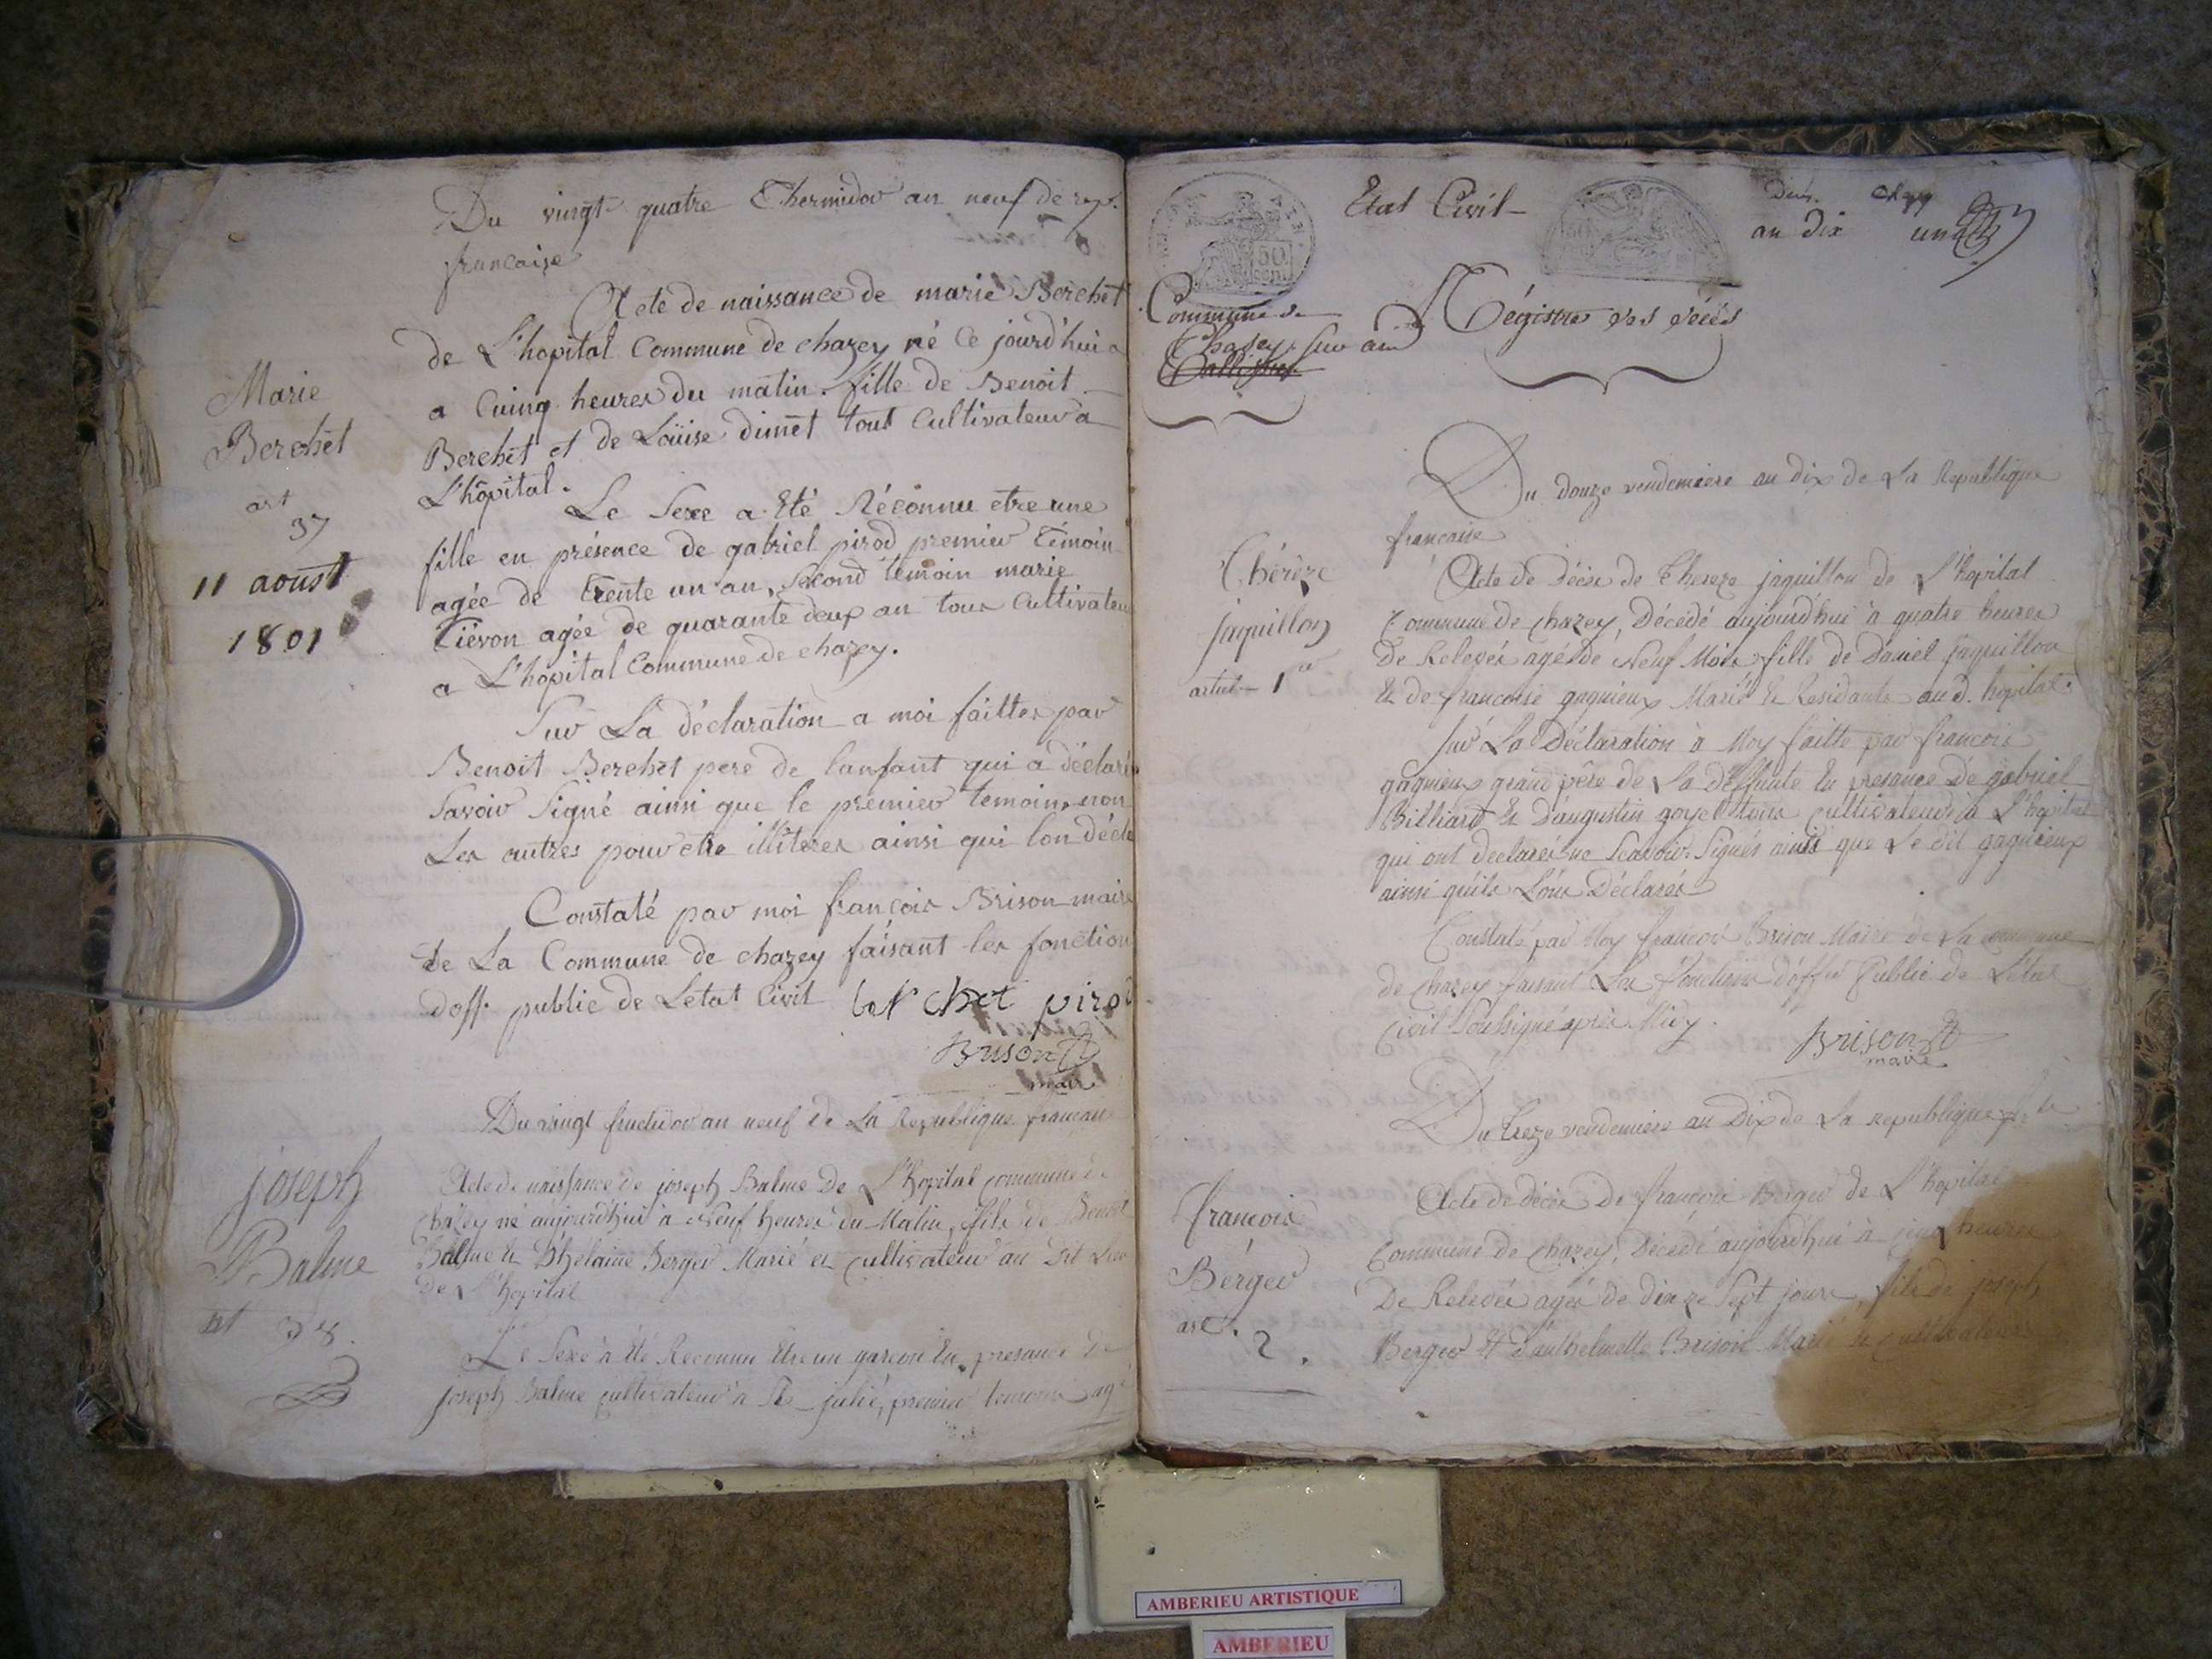 Du vingt quatre Thermidor an neuf de rep.
francaise
Acte de naissance de marie Berchet
de L'hopital Commune de chazey né Ce jourd'hui
a Cuinq heures du matin. fille de Benoit
Berchet et de Loüise dimet tout Cultivateur a
L'hôpital.
Marie
Berchet
art
37
11 aoust
1801
Le Sexe a Eté Réconnu etre une
fille en présence de gabriel pirod premier Témoin
agée de Trente un an, Second temoin marie
Tiévon agée de quarante deux an tous Cultivateu
a L'hopital Commune de chazey.
Sur La déclaration a moi faittes par
Benoit Berchet pere de lanfant qui a déclaré
Savoir Signé ainsi que le premier temoin, non
Les autres pour etre illiteres ainsi qui lon décla
Constaté par moi françois Brison maire
de La Commune de chazey faisant les fonction
doff. public de Letat Civil ber chet pirod
Brison
maire
Du vingt fructidor an neuf de La Republique francaise
joseph
Balme
art 38.
Acte de naissance de joseph Balme De L'hopital commune de
Chazey né aujourd'hui à Neuf heures du Matin, fils de Benoit
Balme & D'helaine Berger Marié et cultivateur au Dit Lieu
De L'hopital
Le Sexe à été Reconnu Etre un garcon En presance de
joseph Balme cultivateur à Ste julie, premier temoin agé
Etat Civil
an dix un
50
cent
Commune de
Chasey sur ain
Régistre des décès
Du douze vendemiere an dix de La Republique
francaise
Thérèze
jaquillon
articl- 1er
Acte de Décès de Thereze jaquillon de L'hôpital
Commune de chazey, Décédé aujourd'hui à quatre heures
De Relevée agée de Neuf Mois fille de Daniel jaquillon
& de francoise gagnieux Marié & Residants aud. hopital.
sur La Déclaration à Moy faitte par francois
gagnieux grand père de La deffunte En presance de gabriel
Billiard & D'augustin goyet tous cultivateurs à L'hopital
qui ont declarés ne Scavoir Signés ainsi que Le dit gagnieux
ainsi qu'ils L'ons Déclarés
Constaté par Moy francois Brison Maire de La commune
de chazey faisant Les fonctions d'offer Public de L'état
Civil Soussigné après Midy. Brison
maire
Du treze vendemiere an Dix de La republique
francois
Berger
art. 2.
Acte de décès de francois Berger de L'hopital
Commune de chazey, Décédé aujourd'hui à heures
De Relevée agés de Sept jours, fils de joseph
Berger & D'anthelmette Brison Marié & cultivateurs
AMBERIEU ARTISTIQUE
AMBERIEU